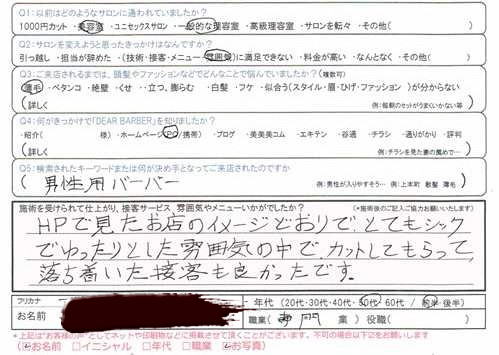 Q1:以前はどのようなサロンに通われていましたか?
1000円カット・美容室・ユニセックスサロン・一般的な理容室・高級理容室・サロンを転々・その他( )
Q2:サロンを変えようと思ったきっかけはなんですか?
引っ越し・担当が辞めた・(技術・接客・メニュー・雰囲気)に満足できない・料金が高い・なんとなく・その他( )
Q3:ご来店されるまでは、頭髪やファッションなどでどんなことで悩んでいましたか?(複数可)
薄毛・ペタンコ・絶壁・くせ・立つ、膨らむ・白髪・フケ・似合う(スタイル・眉・ひげ・ファッション)が分からない
(詳しく 例:毎朝のセットがうまくいかない等
Q4:何がきっかけで「DEAR BARBER」を知りましたか?
・紹介( 様)・ホームページ(PC/携帯)・ブログ・美美美コム・エキテン・谷通・チラシ・通りがかり・評判
(詳しく 例:チラシを見た妻の薦めで…
Q5:検索されたキーワードまたは何が決め手となってご来店されたのですか
(男性用バーバー 例:男性が入りやすそう…例:上本町 散髪 薄毛)
施術を受けられて仕上がり、接客サービス、雰囲気やメニューいかがでしたか?(*施術後のご記入ご協力お願いいたします)
HPで見たお店のイメージどおりで、とてもシック
でゆったりとした雰囲気の中で、カットしてもらって、
落ち着いた接客も良かったです。
フリカナ
お名前
年代(20代・30代・40代・50代・60代 / 前半・後半)
職業(専門 業)役職( )
*上記は"お客様の声"としてネットや印刷物などに掲載させて頂くことがございます。不可の場合は以下☑をお願いします
☑お名前 □イニシャル □年代 □職業 ☑お写真)